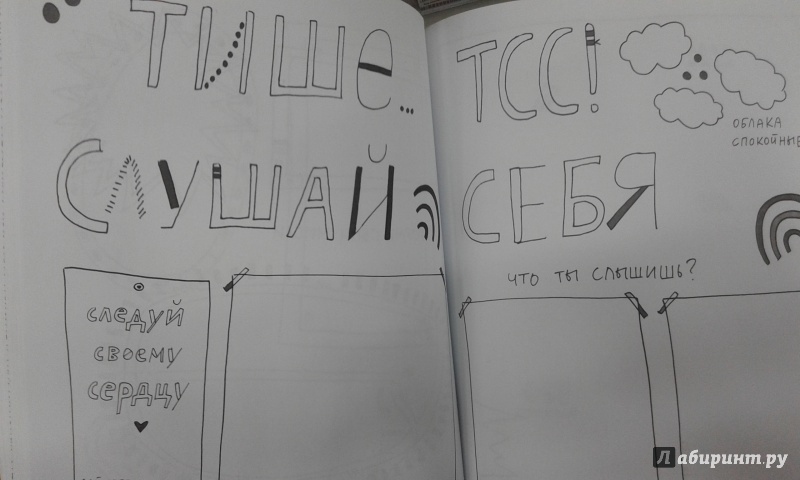 ТИШЕ...
СЛУШАЙ
следуй
своему
сердцу
ТСС!
ОБЛАКА
СПОКОЙНЫЕ
СЕБЯ
ЧТО ТЫ СЛЫШИШЬ?
Лабиринт.ру